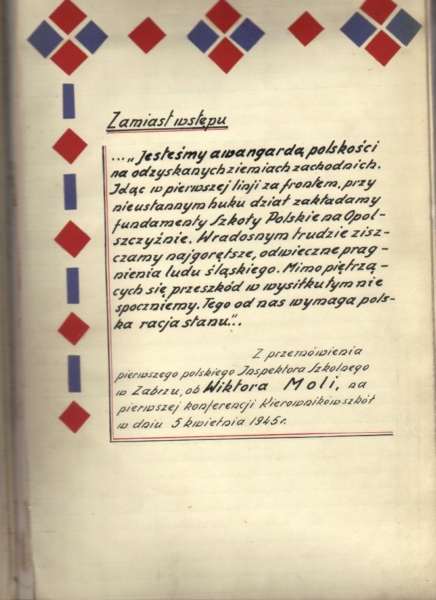 Zamiast wstępu
..."Jesteśmy awangardą polskości
na odzyskanych ziemiach zachodnich.
Idąc w pierwszej linji za frontem, przy
nieustannym huku dział zakładamy
fundamenty Szkoły Polskie na Opol-
szczyźnie. W radosnym trudzie zisz-
czamy najgorętsze, odwieczne prag-
nienia ludu śląskiego. Mimo piętrzą-
cych się przeszkód w wysiłku tym nie
spoczniemy. Tego od nas wymaga pols-
ka racja stanu"..
Z przemówienia
pierwszego polskiego Inspektora Szkolnego
w Zabrzu, ob Wiktora Moli, na
pierwszej konferencji Kierowników szkół
w dniu 5 kwietnia 1945 r.